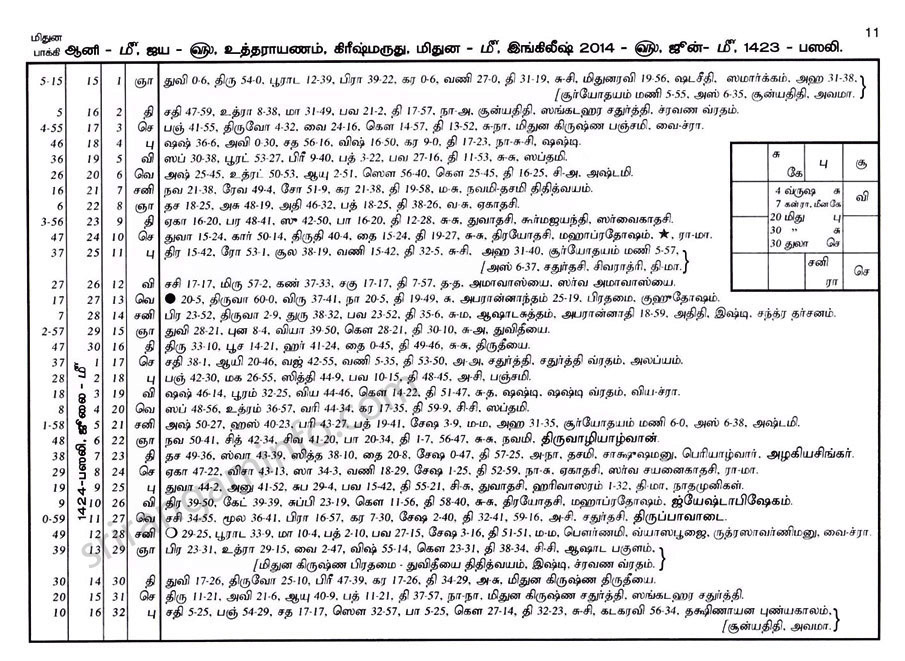 மிதுன
பாக்கி ஆனி - மீ, ஜய - ௵, உத்தராயணம், கிரீஷ்மருது, மிதுன - மீ, இங்கிலீஷ் 2014 - ௵, ஜூன்- மீ, 1423 - பஸலி. 11
5-15 15 1 ஞா துவி 0-6, திரு 54-0, பூராட 12-39, பிரா 39-22, கர 0-6, வணி 27-0, தி 31-19, சு-சி, மிதுனரவி 19-56, ஷடசீதி, ஸமார்க்கம், அஹ 31-38,
[சூர்யோதயம் மணி 5-55, அஸ் 6-35, சூன்யதிதி, அவமா.
5 16 2 தி சதி 47-59, உத்ரா 8-38, மா 31-49, பவ 21-2, தி 17-57, நா-அ, சூன்யதிதி, ஸங்கடஹர சதுர்த்தி, ச்ரவண வ்ரதம்.
4-55 17 3 செ பஞ் 41-55, திருவோ 4-32, வை 24-16, கௌ 14-57, தி 13-52, சு-நா, மிதுன கிருஷ்ண பஞ்சமி, வை-ச்ரா.
46 18 4 பு ஷஷ் 36-6, அவி 0-30, சத 56-16, விஷ் 16-50, கர 9-0, தி 17-23, நா-சு-சி, ஷஷ்டி.
36 19 5 வி ஸப் 30-38, பூரட் 53-27, பிரீ 9-40, பத் 3-22, பவ 27-16, தி 11-53, சு-சு, ஸப்தமி.
26 20 6 வெ அஷ் 25-45, உத்ரட் 50-53, ஆயு 2-51, ஸௌ 56-40, கௌ 25-45, தி 16-25, சி-அ, அஷ்டமி.
16 21 7 சனி நவ 21-38, ரேவ 49-4, சோ 51-9, கர 21-38, தி 19-58, ம-சு, நவமி-தசமி திதித்வயம்.
6 22 8 ஞா தச 18-25, அசு 48-19, அதி 46-32, பத் 18-25, தி 38-26, வ-சு, ஏகாதசி.
3-56 23 9 தி ஏகா 16-20, பர 48-41, ஸு 42-50, பா 16-20, தி 12-28, சு-சு, துவாதசி, கூர்மஜயந்தி, ஸர்வைகாதசி.
47 24 10 செ துவா 15-24, கார் 50-14, திருதி 40-4, தை 15-24, தி 19-27, சு-சு, திரயோதசி, மஹாப்ரதோஷம், ★, ரா-மா.
37 25 11 பு திர 15-42, ரோ 53-1, சூல 38-19, வணி 15-42, தி 32-5, சு-சி, அஹ 31-40, சூர்யோதயம் மணி 5-57,
[அஸ் 6-37, சதுர்தசி, சிவராத்ரி, தி-மா.
27 26 12 வி சசி 17-17, மிரு 57-2, கண் 37-33, சகு 17-17, தி 7-57, த-த, அமாவாஸ்யை, ஸர்வ அமாவாஸ்யை.
17 27 13 வெ ● 20-5, திருவா 60-0, விரு 37-41, நா 20-5, தி 19-49, சு, அபரான்னாந்தம் 25-19, பிரதமை, குஹூதோஷம்.
7 28 14 சனி பிர 23-52, திருவா 2-9, துரு 38-32, பவ 23-52, தி 35-6, சு-ம, ஆஷாடசுத்தம், அபரான்னாதி 18-59, அதிதி, இஷ்டி, சந்த்ர தர்சனம்.
2-57 29 15 ஞா துவி 28-21, புன 8-4, வியா 39-50, கௌ 28-21, தி 30-10, சு-அ, துவிதீயை.
47 30 16 தி திரு 33-10, பூச 14-21, ஹர் 41-24, தை 0-45, தி 49-46, சு-சு, திருதீயை.
37 1 17 செ சதி 38-1, ஆயி 20-46, வஜ் 42-55, வணி 5-35, தி 53-50, அ-அ, சதுர்த்தி, சதுர்த்தி வ்ரதம், அலப்யம்.
28 2 18 பு பஞ் 42-30, மக 26-55, ஸித்தி 44-9, பவ 10-15, தி 48-45, அ-சி, பஞ்சமி.
18 3 19 வி ஷஷ் 46-14, பூரம் 32-25, விய 44-46, கௌ 14-22, தி 51-47, சு-த, ஷஷ்டி, ஷஷ்டி வ்ரதம், விய-ச்ரா.
8 4 20 வெ ஸப் 48-56, உத்ரம் 36-57, வரி 44-34, கர 17-35, தி 59-9, சி-சி, ஸப்தமி.
1-58 5 21 சனி அஷ் 50-27, ஹஸ் 40-23, பரி 43-27, பத் 19-41, சேஷ 3-9, ம-ம, அஹ 31-35, சூர்யோதயம் மணி 6-0, அஸ் 6-38, அஷ்டமி.
48 6 22 ஞா நவ 50-41, சித் 42-34, சிவ 41-20, பா 20-34, தி 1-7, 56-47, சு-சு, நவமி, திருவாழியாழ்வான்.
38 7 23 தி தச 49-36, ஸ்வா 43-39, ஸித்த 38-10, தை 20-8, சேஷ 0-47, தி 57-25, அ-நா, தசமி, சாக்ஷுஷமனு, பெரியாழ்வார், அழகியசிங்கர்.
29 8 24 செ ஏகா 47-22, விசா 43-13, ஸா 34-3, வணி 18-29, சேஷ 1-25, தி 52-59, நா-சு, ஏகாதசி, ஸர்வ சயனைகாதசி, ரா-மா.
19 9 25 பு துவா 44-2, அனு 41-52, சுப 29-4, பவ 15-42, தி 55-21, சி-சு, துவாதசி, ஹரிவாஸரம் 1-32, தி-மா, நாதமுனிகள்.
9 10 26 வி திர 39-50, கேட் 39-39, சுப்பி 23-19, கௌ 11-56, தி 58-40, சு-சு, திரயோதசி, மஹாப்ரதோஷம், ஜ்யேஷ்டாபிஷேகம்.
0-59 11 27 வெ சசி 34-55, மூல 36-41, பிரா 16-57, கர 7-30, சேஷ 2-40, தி 32-41, 59-16, அ-சி, சதுர்தசி, திருப்பாவாடை.
49 12 28 சனி ○ 29-25, பூராட 33-9, மா 10-4, பத் 2-10, பவ 27-15, சேஷ 3-16, தி 51-51, ம-ம, பௌர்ணமி, வ்யாஸபூஜை, ருத்ரஸாவர்ணிமனு, வை-ச்ரா.
39 13 29 ஞா பிர 23-31, உத்ரா 29-15, வை 2-47, விஷ் 55-14, கௌ 23-31, தி 38-34, சி-சி, ஆஷாட பகுளம்,
[மிதுன கிருஷ்ண பிரதமை - துவிதீயை திதித்வயம், இஷ்டி, ச்ரவண வ்ரதம்.
30 14 30 தி துவி 17-26, திருவோ 25-10, பிரீ 47-39, கர 17-26, தி 34-29, அ-சு, மிதுன கிருஷ்ண திருதீயை.
20 15 31 செ திரு 11-21, அவி 21-6, ஆயு 40-9, பத் 11-21, தி 37-57, நா-நா, மிதுன கிருஷ்ண சதுர்த்தி, ஸங்கடஹர சதுர்த்தி.
10 16 32 பு சதி 5-25, பஞ் 54-29, சத 17-17, ஸௌ 32-57, பா 5-25, கௌ 27-14, தி 32-23, சு-சி, கடகரவி 56-34, தக்ஷிணாயன புண்யகாலம்,
[சூன்யதிதி, அவமா.
1424-பஸலி, ஜூலை - மீ
சு
கே பு சூ
4 வ்ருஷ சு
7 கன்ரா, மீனகே
20 மிது பு
30 " சு
30 துலா செ
வி
சனி
ரா செ